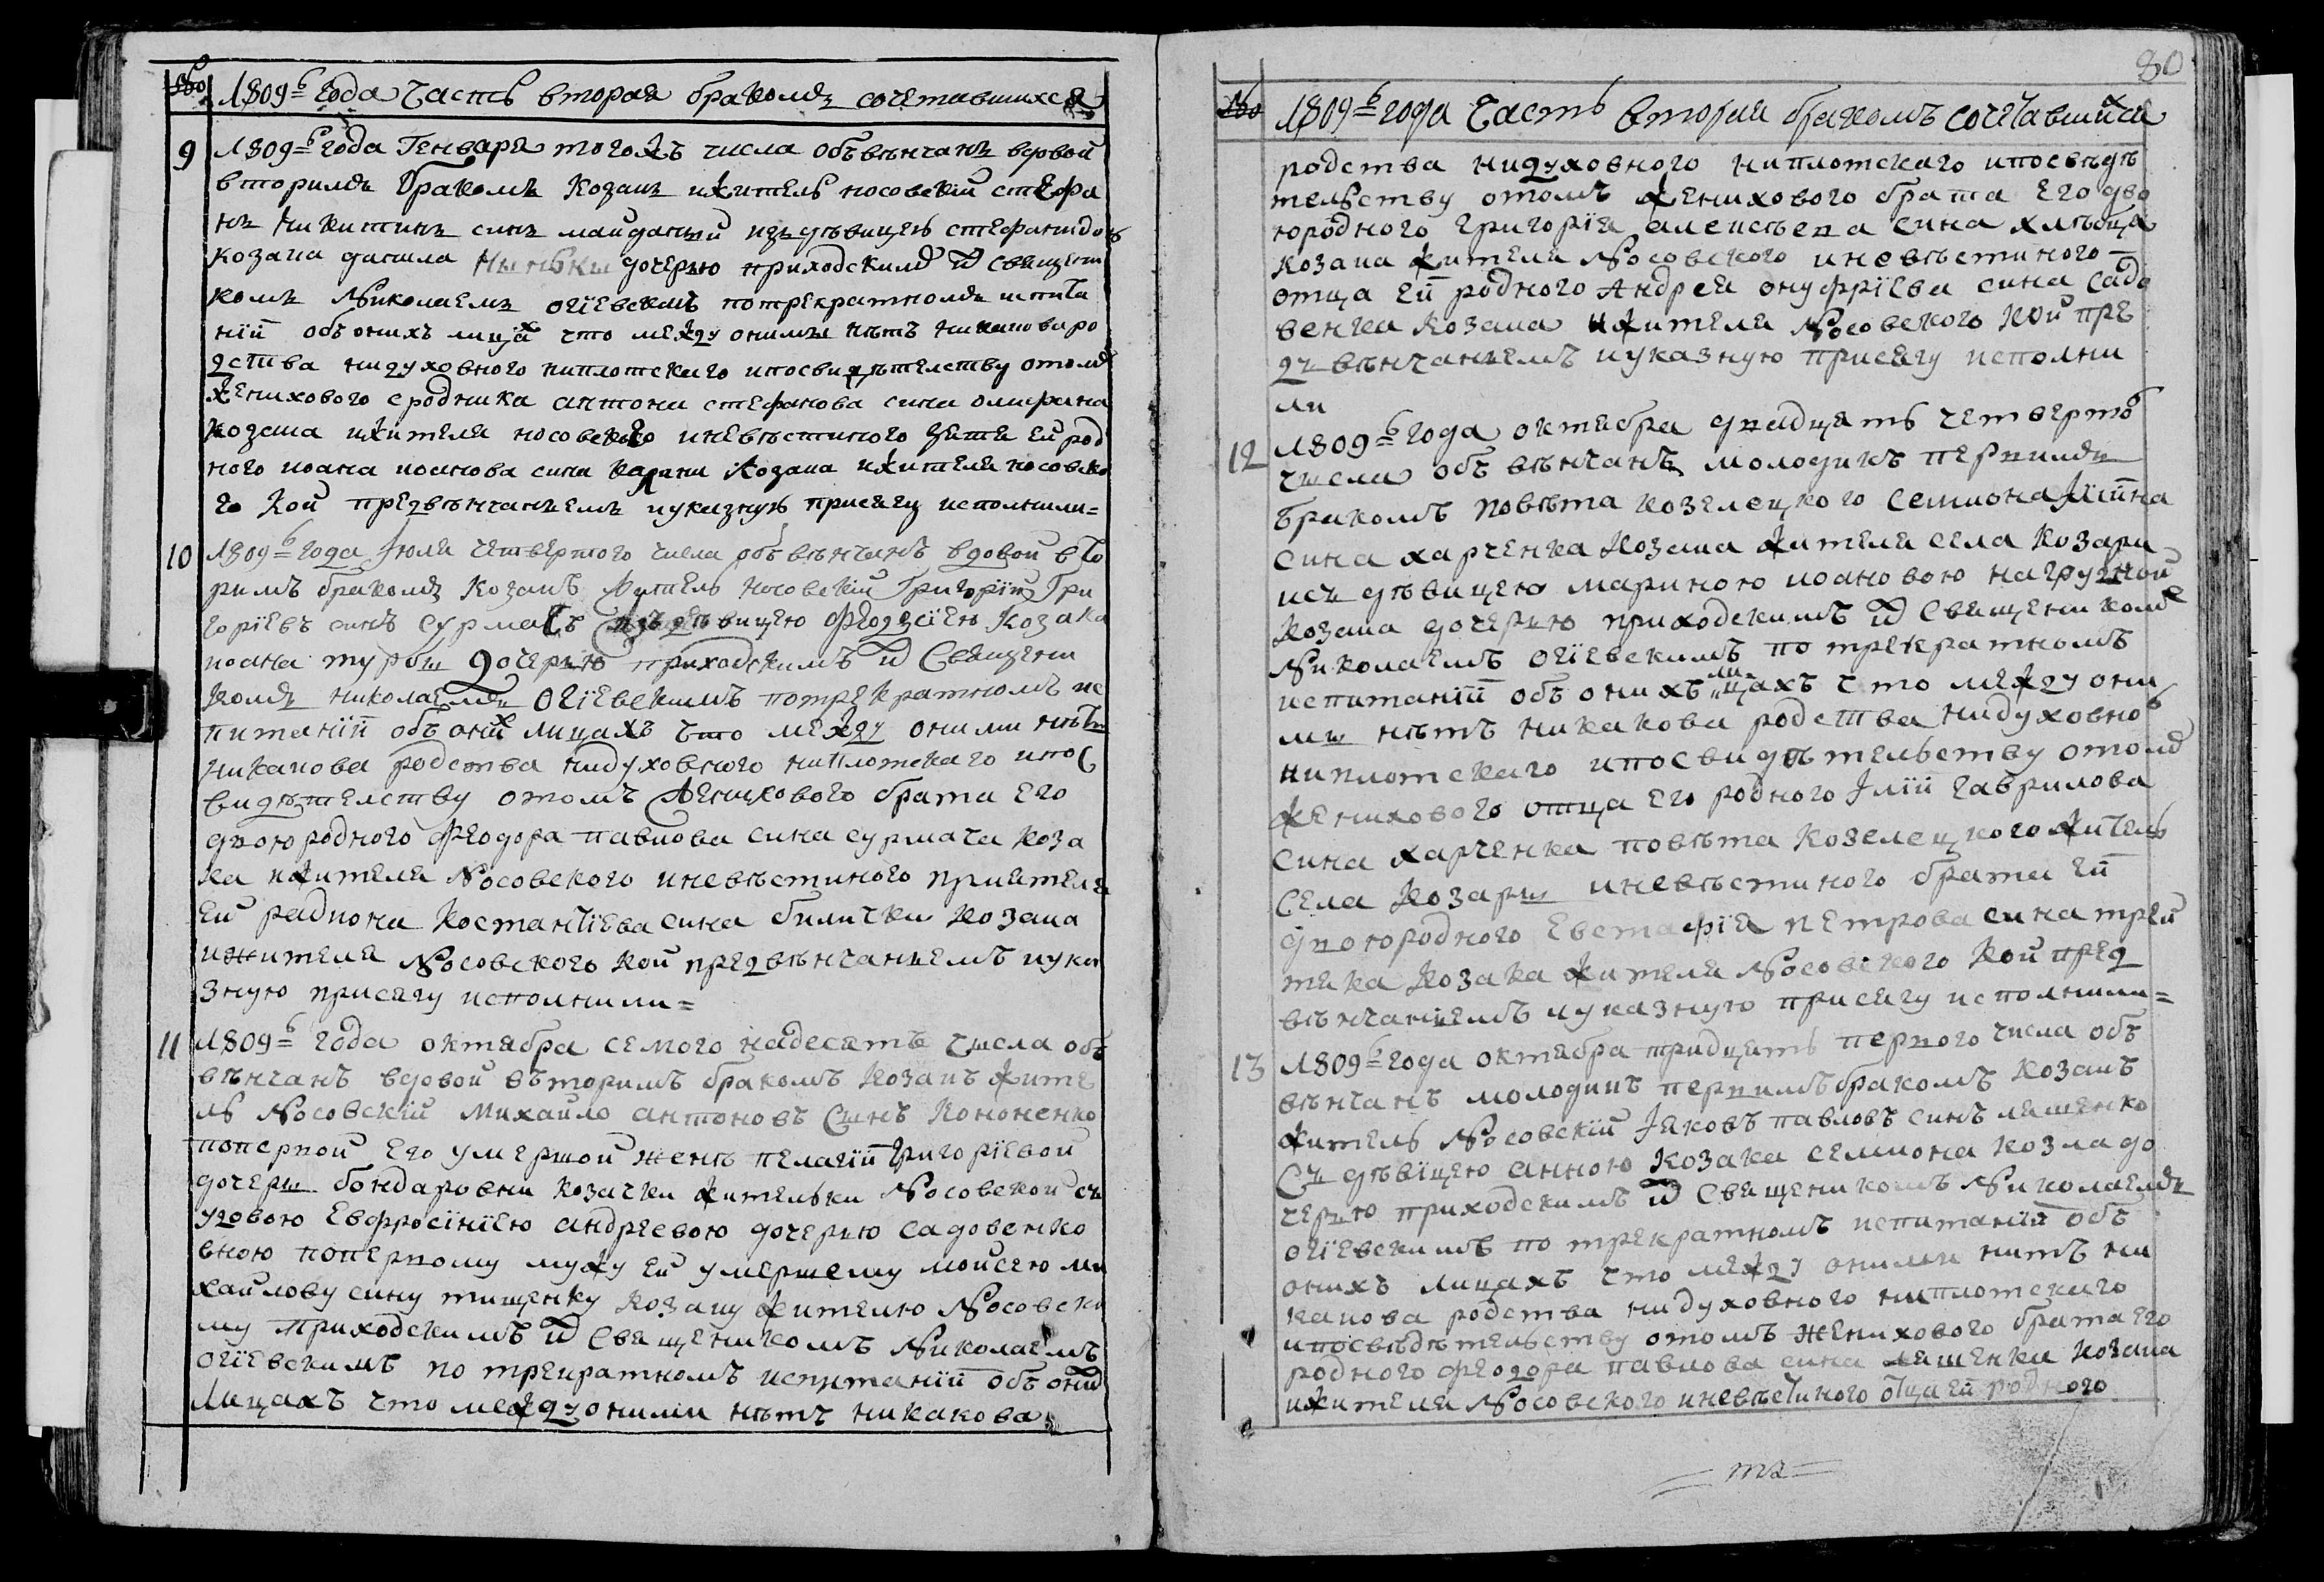 № 1809го Года Часть вторая бракомъ сочетавшихся
9 1809го Года Генваря того жъ числа объвѣнчанъ вдовой
вторимъ бракомъ козакъ и житель носовскїй стефа
нъ никитинъ синъ майданїй изъ дѣвицею стефанїдою
козака данила дочерью приходскимъ w͡т священи
комъ Николаемъ огїевскимъ потрекратномъ испита
нїй объ онихъ лицах что между оними нѣтъ никакова ро
дства ни духовного ни плотскаго и посвидѣтелству отомъ
женихового сродника антона стефанова сина
козака и жителя носовского и невѣстиного зятя ей род
ного иоана иоанова сина козака и жителя носовско
го кой предвѣнчанъемъ и указную присягу исполнили=
10 1809го года Июля четвертого числа объвѣнчанъ вдовой вто
римъ бракомъ козакъ житель носовскїй Григорїй Гри
горїевъ синъ сурмачъ изъ дѣвицею Феодосїею козака
иоана турби дочерью приходскимъ w͡т Священи
комъ николаемъ огїевскимъ потрекратномъ ис
питанїй объ оних лицахъ что между оними нѣтъ
никакова родства ни духовного ни плотскаго и пос
видѣтелству отомъ женихового брата его
двоюродного Феодора павлова сина сурмача коза
ка и жителя Носовского и невѣстиного приятеля
ей радиона костантїева сина билички козака
и жителя Носовского кой предвѣнчанъемъ и ука
зную присягу исполнили=
11 1809го года октября семого надесять числа объ
вѣнчанъ вдовой въторимъ бракомъ козакъ жите
ль Носовскїй Михайло антоновъ Синъ Кононенко
поперпой его умершой женѣ пелагїй григорїевой
дочери бондаровни козачки жительки Носовской съ
удовою Евфросїнїею андреевою дочерью садовенко
вною поперпому мужу ей умершему мойсею ми
хайлову сину тищенку козаку жителю Носовско
му приходскимъ w͡т Священикомъ Николаемъ
огїевскимъ по трекратномъ испитанїй объ оних
лицахъ что между оними нѣтъ никакова
80
№ 1809го года Часть вторая бракомъ сочетавшихся
родства ни духовного ни плотскаго и посвѣдѣ
тельству отомъ женихового брата его дво
юродного григорїя алексѣева сина хлѣбца
козака жителя Носовского и невѣстиного
отца ей родного Андрея онуфрїева сина садо
венка козака и жителя Носовского кой пре
дъ вѣнчанъемъ и указную присягу исполни
ли
12 1809го года октября двадцать четверто
числа объвѣнчанъ молодикъ перпимъ
бракомъ повѣта козелецкого семиона Илїина
сина харченка козака жителя села козари
исъ дѣвицею мариною иоановою нагрудной
козака дочерью приходскимъ w͡т священикомъ
Николаемъ огїевскимъ по трекратномъ
испитанїй объ онихъ лицахъ что между они
ми нѣтъ никакова родства ни духовного
ни плотскаго и посвидѣтельству отомъ
женихового отца его родного Илїи гаврилова
сина харченка повѣта козелецкого житель
села козари и невѣстиного брата ей
двоюродного Евстафїя петрова сина трей
тяка козака жителя Носовского кой пред
вѣнчанъемъ и указную присягу исполнили=
13 1809го года октября тридцять перпого числа объ
вѣнчанъ молодикъ перпимъ бракомъ козакъ
житель Носовскїй Іяковъ павловъ синъ ляшенко
Съ дѣвїцею анною козака семиона козла до
черью приходскимъ w͡т Священикомъ Николаемъ
огїевскимъ по трекратномъ испитанїй объ
онихъ лицахъ что между оними нитъ ни
какова родства ни духовного ни плотскаго
и посвѣдѣтельству отомъ женихового брата его
родного Феодора павлова сина ляшенка козака
и жителя Носовского и невѣстиного отца ей родного